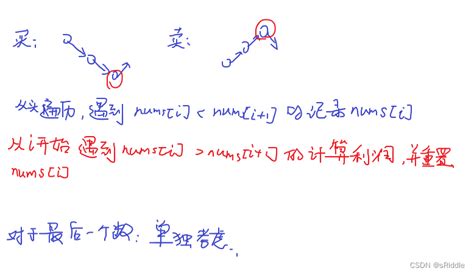 买： 卖：
从头遍历，遇到 nums[i] < nums[i+1] 的记录 nums[i]
从i开始 遇到 nums[i] > nums[i+1] 的计算利润，并重置
nums[i]
对于最后一个数：单独考虑.
CSDN @sRiddle